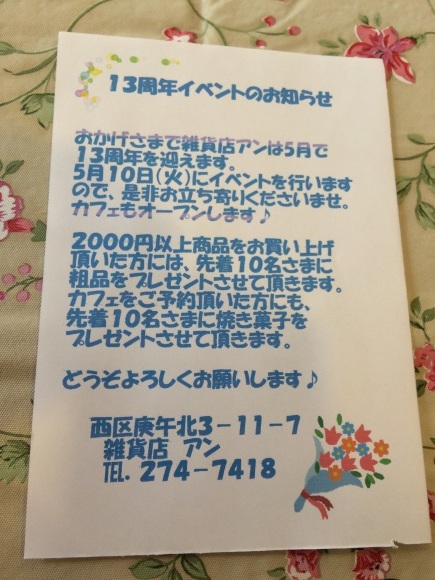 13周年イベントのお知らせ
おかげさまで雑貨店アンは5月で
13周年を迎えます。
5月10日(火)にイベントを行います
ので、是非お立ち寄りくださいませ。
カフェもオープンします♪
2000円以上商品をお買い上げ
頂いた方には、先着10名さまに
粗品をプレゼントさせて頂きます。
カフェをご予約頂いた方にも、
先着10名さまに焼き菓子を
プレゼントさせて頂きます。
どうぞよろしくお願いします♪
西区庚午北3-11-7
雑貨店 アン
TEL. 274-7418